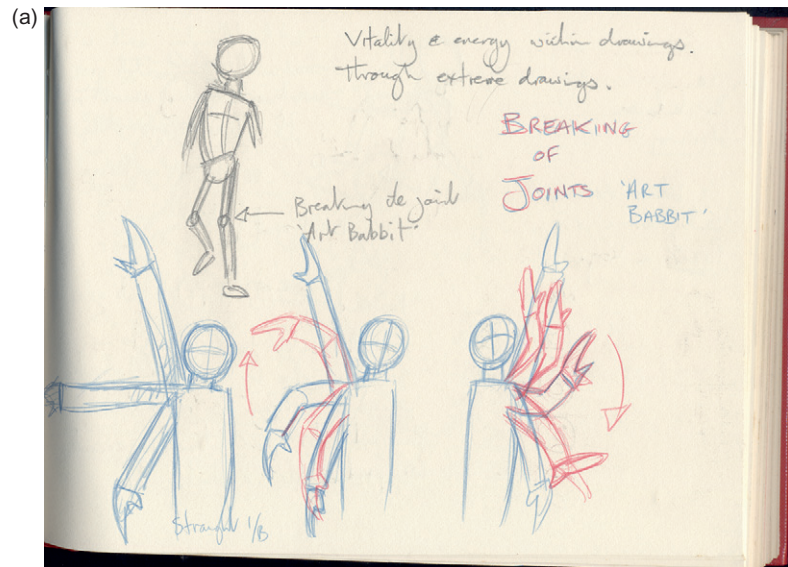 (a)
Vitality & energy within drawings.
Through extreme drawings.
BREAKING
OF
JOINTS 'ART
BABBIT'
Breaking de joint
'Art Babbit'
Straight 1/B